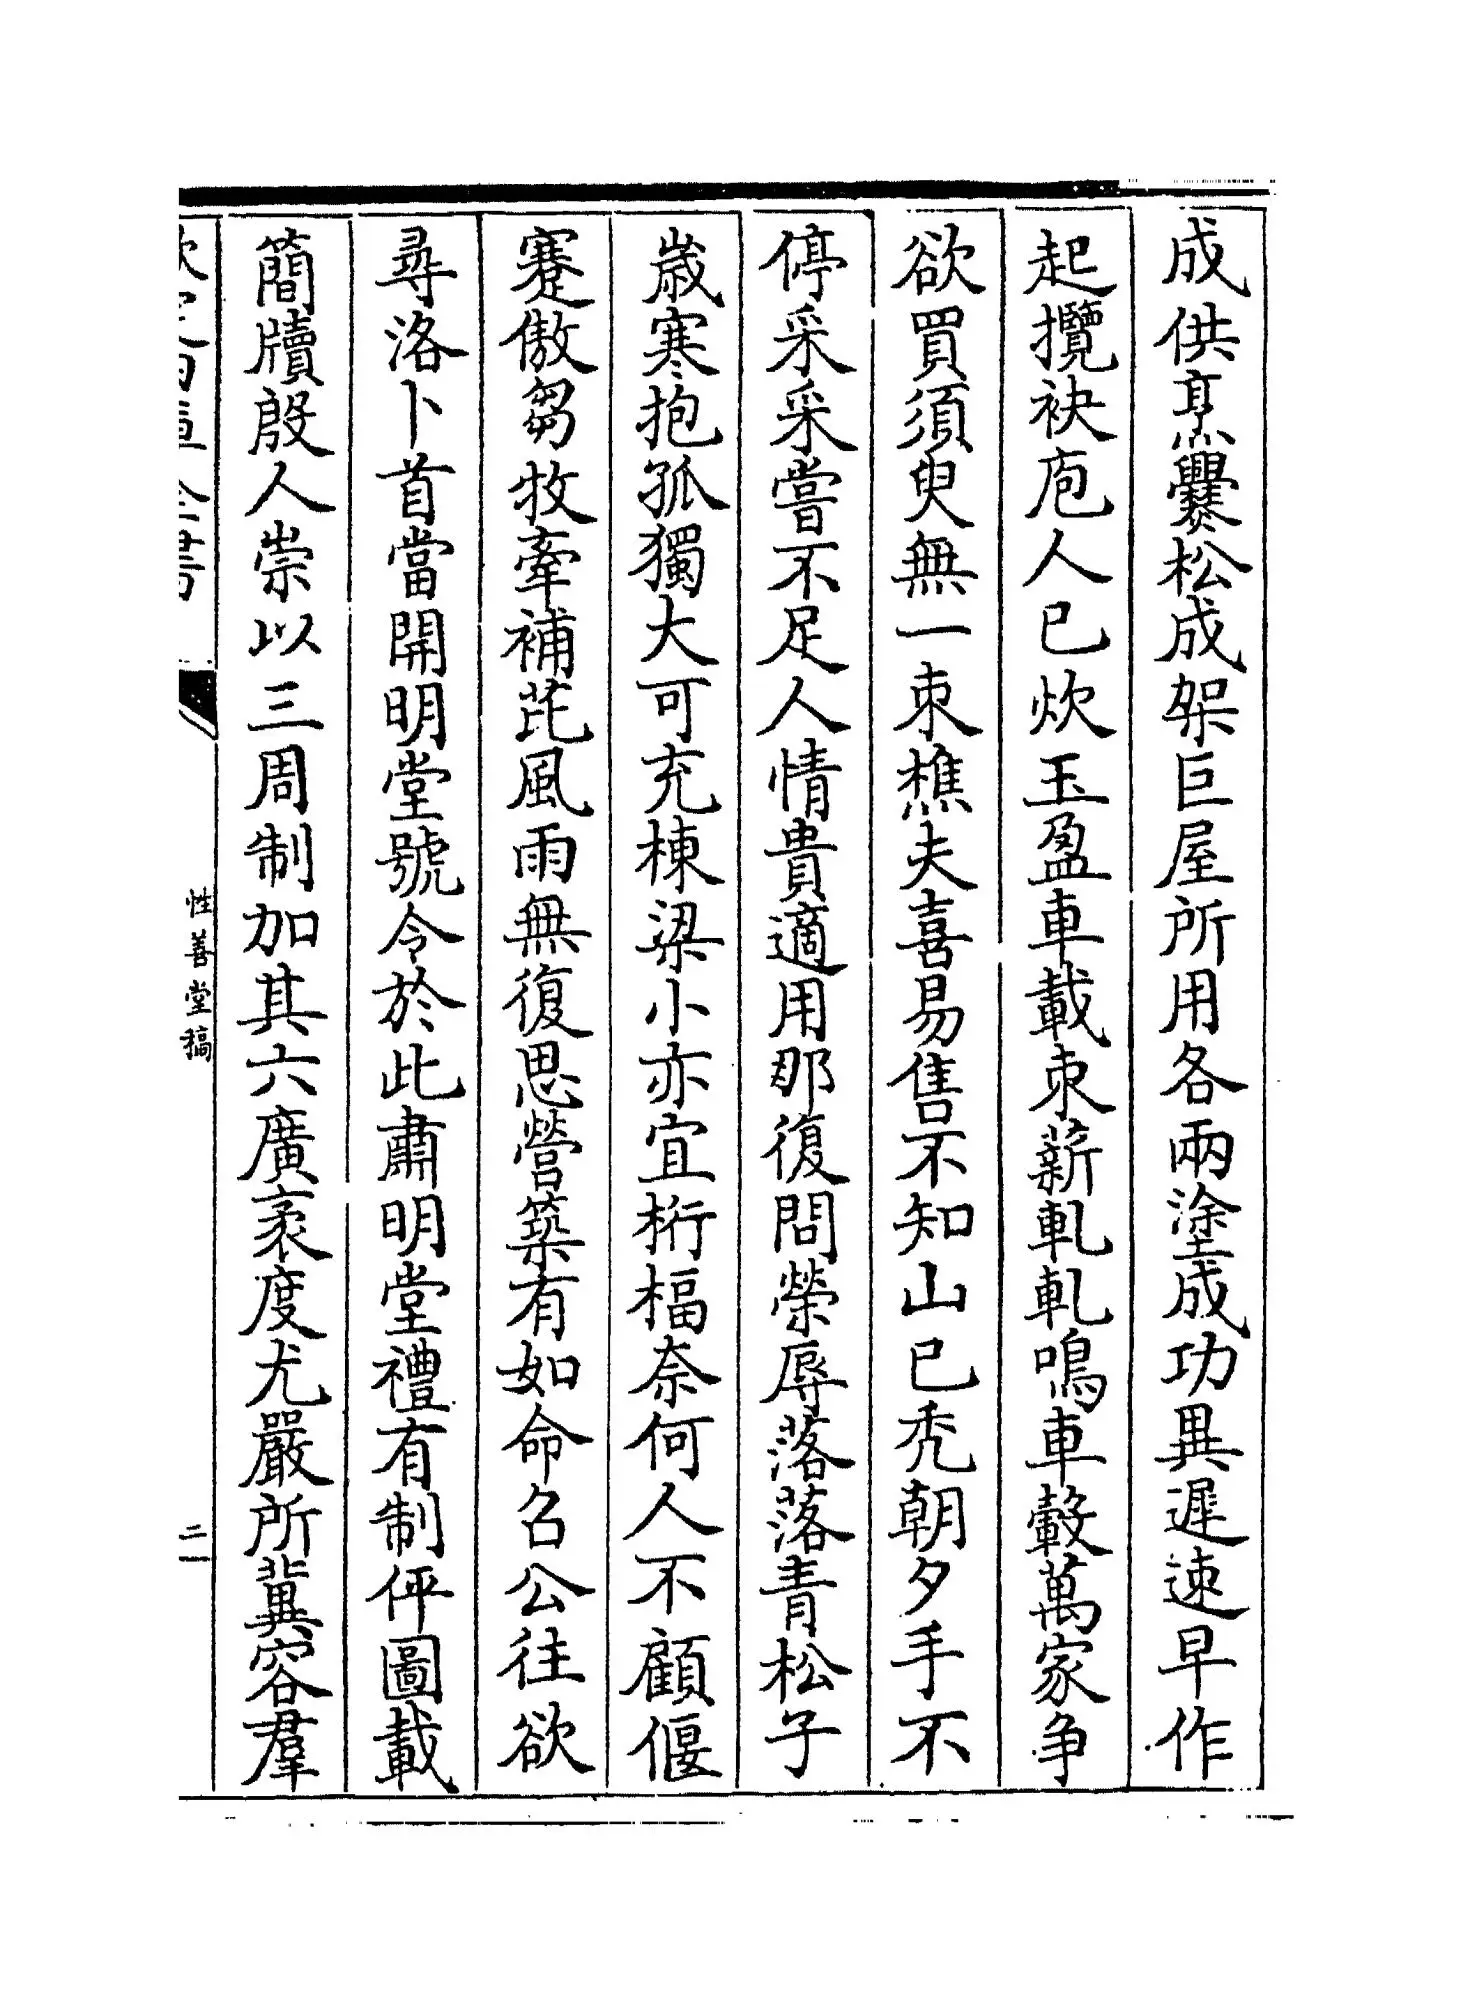 成供烹爨松成架巨屋所用各兩塗成功異遲速早作
起攬袂庖人已炊玉盈車載束薪軋軋鳴車轂萬家争
欲買須臾無一束樵夫喜易售不知山已秃朝夕手不
停采采嘗不足人情貴適用那復問榮辱落落青松子
歳寒抱孤獨大可充棟梁小亦宜桁楅奈何人不顧偃
蹇傲芻牧牽補芘風雨無復思營築有如命召公往欲
尋洛卜首當開明堂號令於此肅明堂禮有制伻圖載
簡牘殷人崇以三周制加其六廣袤度尤嚴所冀容羣
欽定四庫全書
性善堂稿
二